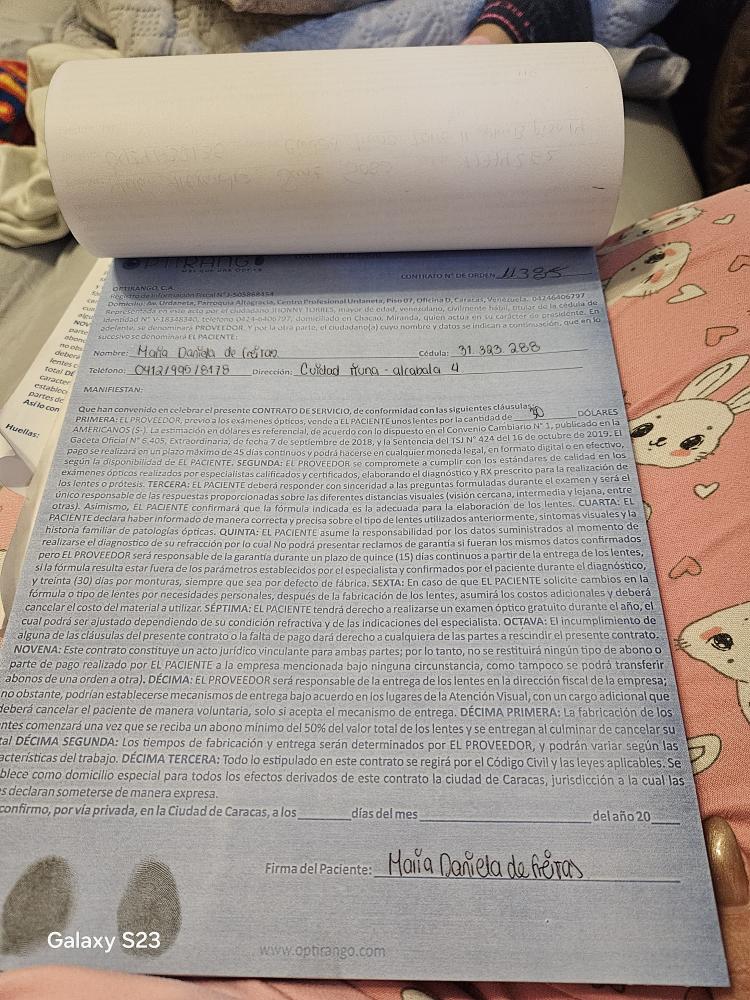 OPTIRANGO
MÁS QUE UNA ÓPTICA
CONTRATO N° DE ORDEN 11385
OPTIRANGO, C.A.
Registro de Información Fiscal N° J-505868454
Domicilio: Av. Urdaneta, Parroquia Altagracia, Centro Profesional Urdaneta, Piso 07, Oficina D, Caracas, Venezuela. 04246406797
Representada en este acto por el ciudadano JHONNY TORRES, mayor de edad, venezolano, civilmente hábil, titular de la cédula de
identidad N° V-18348340, teléfono 0424-6406797, domiciliado en Chacao, Miranda, quien actúa en su carácter de presidente. En
adelante, se denominará PROVEEDOR. Y por la otra parte, el ciudadano(a) cuyo nombre y datos se indican a continuación, que en lo
sucesivo se denominará EL PACIENTE:
Nombre: Maria Daniela de freitas Cédula: 31.323.288
Teléfono: Dirección: Cuidad tiuna - alcabala 4
MANIFIESTAN:
Que han convenido en celebrar el presente CONTRATO DE SERVICIO, de conformidad con las siguientes cláusulas:
PRIMERA: EL PROVEEDOR, previo a los exámenes ópticos, vende a EL PACIENTE unos lentes por la cantidad de 30 DÓLARES
AMERICANOS ($-). La estimación en dólares es referencial, de acuerdo con lo dispuesto en el Convenio Cambiario N° 1, publicado en la
Gaceta Oficial N° 6.405, Extraordinaria, de fecha 7 de septiembre de 2018, y la Sentencia del TSJ N° 424 del 16 de octubre de 2019. El
pago se realizará en un plazo máximo de 45 días continuos y podrá hacerse en cualquier moneda legal, en formato digital o en efectivo,
según la disponibilidad de EL PACIENTE. SEGUNDA: EL PROVEEDOR se compromete a cumplir con los estándares de calidad en los
exámenes ópticos realizados por especialistas calificados y certificados, elaborando el diagnóstico y RX prescrito para la realización de
los lentes o prótesis. TERCERA: EL PACIENTE deberá responder con sinceridad a las preguntas formuladas durante el examen y será el
único responsable de las respuestas proporcionadas sobre las diferentes distancias visuales (visión cercana, intermedia y lejana, entre
otras). Asimismo, EL PACIENTE confirmará que la fórmula indicada es la adecuada para la elaboración de los lentes. CUARTA: EL
PACIENTE declara haber informado de manera correcta y precisa sobre el tipo de lentes utilizados anteriormente, síntomas visuales y la
historia familiar de patologías ópticas. QUINTA: EL PACIENTE asume la responsabilidad por los datos suministrados al momento de
realizarse el diagnostico de su refracción por lo cual No podrá presentar reclamos de garantía si fueran los mismos datos confirmados
pero EL PROVEEDOR será responsable de la garantía durante un plazo de quince (15) días continuos a partir de la entrega de los lentes,
si la fórmula resulta estar fuera de los parámetros establecidos por el especialista y confirmados por el paciente durante el diagnóstico,
y treinta (30) días por monturas, siempre que sea por defecto de fábrica. SEXTA: En caso de que EL PACIENTE solicite cambios en la
fórmula o tipo de lentes por necesidades personales, después de la fabricación de los lentes, asumirá los costos adicionales y deberá
cancelar el costo del material a utilizar. SÉPTIMA: EL PACIENTE tendrá derecho a realizarse un examen óptico gratuito durante el año, el
cual podrá ser ajustado dependiendo de su condición refractiva y de las indicaciones del especialista. OCTAVA: El incumplimiento de
alguna de las cláusulas del presente contrato o la falta de pago dará derecho a cualquiera de las partes a rescindir el presente contrato.
NOVENA: Este contrato constituye un acto jurídico vinculante para ambas partes; por lo tanto, no se restituirá ningún tipo de abono o
parte de pago realizado por EL PACIENTE a la empresa mencionada bajo ninguna circunstancia, como tampoco se podrá transferir
abonos de una orden a otra). DÉCIMA: EL PROVEEDOR será responsable de la entrega de los lentes en la dirección fiscal de la empresa;
no obstante, podrían establecerse mecanismos de entrega bajo acuerdo en los lugares de la Atención Visual, con un cargo adicional que
deberá cancelar el paciente de manera voluntaria, solo si acepta el mecanismo de entrega. DÉCIMA PRIMERA: La fabricación de los
ntes comenzará una vez que se reciba un abono mínimo del 50% del valor total de los lentes y se entregan al culminar de cancelar su
tal DÉCIMA SEGUNDA: Los tiempos de fabricación y entrega serán determinados por EL PROVEEDOR, y podrán variar según las
acterísticas del trabajo. DÉCIMA TERCERA: Todo lo estipulado en este contrato se regirá por el Código Civil y las leyes aplicables. Se
blece como domicilio especial para todos los efectos derivados de este contrato la ciudad de Caracas, jurisdicción a la cual las
s declaran someterse de manera expresa.
confirmo, por vía privada, en la Ciudad de Caracas, a los ______ días del mes ______ del año 20___
Firma del Paciente: Maria Daniela de freitas
www.optirango.com
Huellas:
Galaxy S23